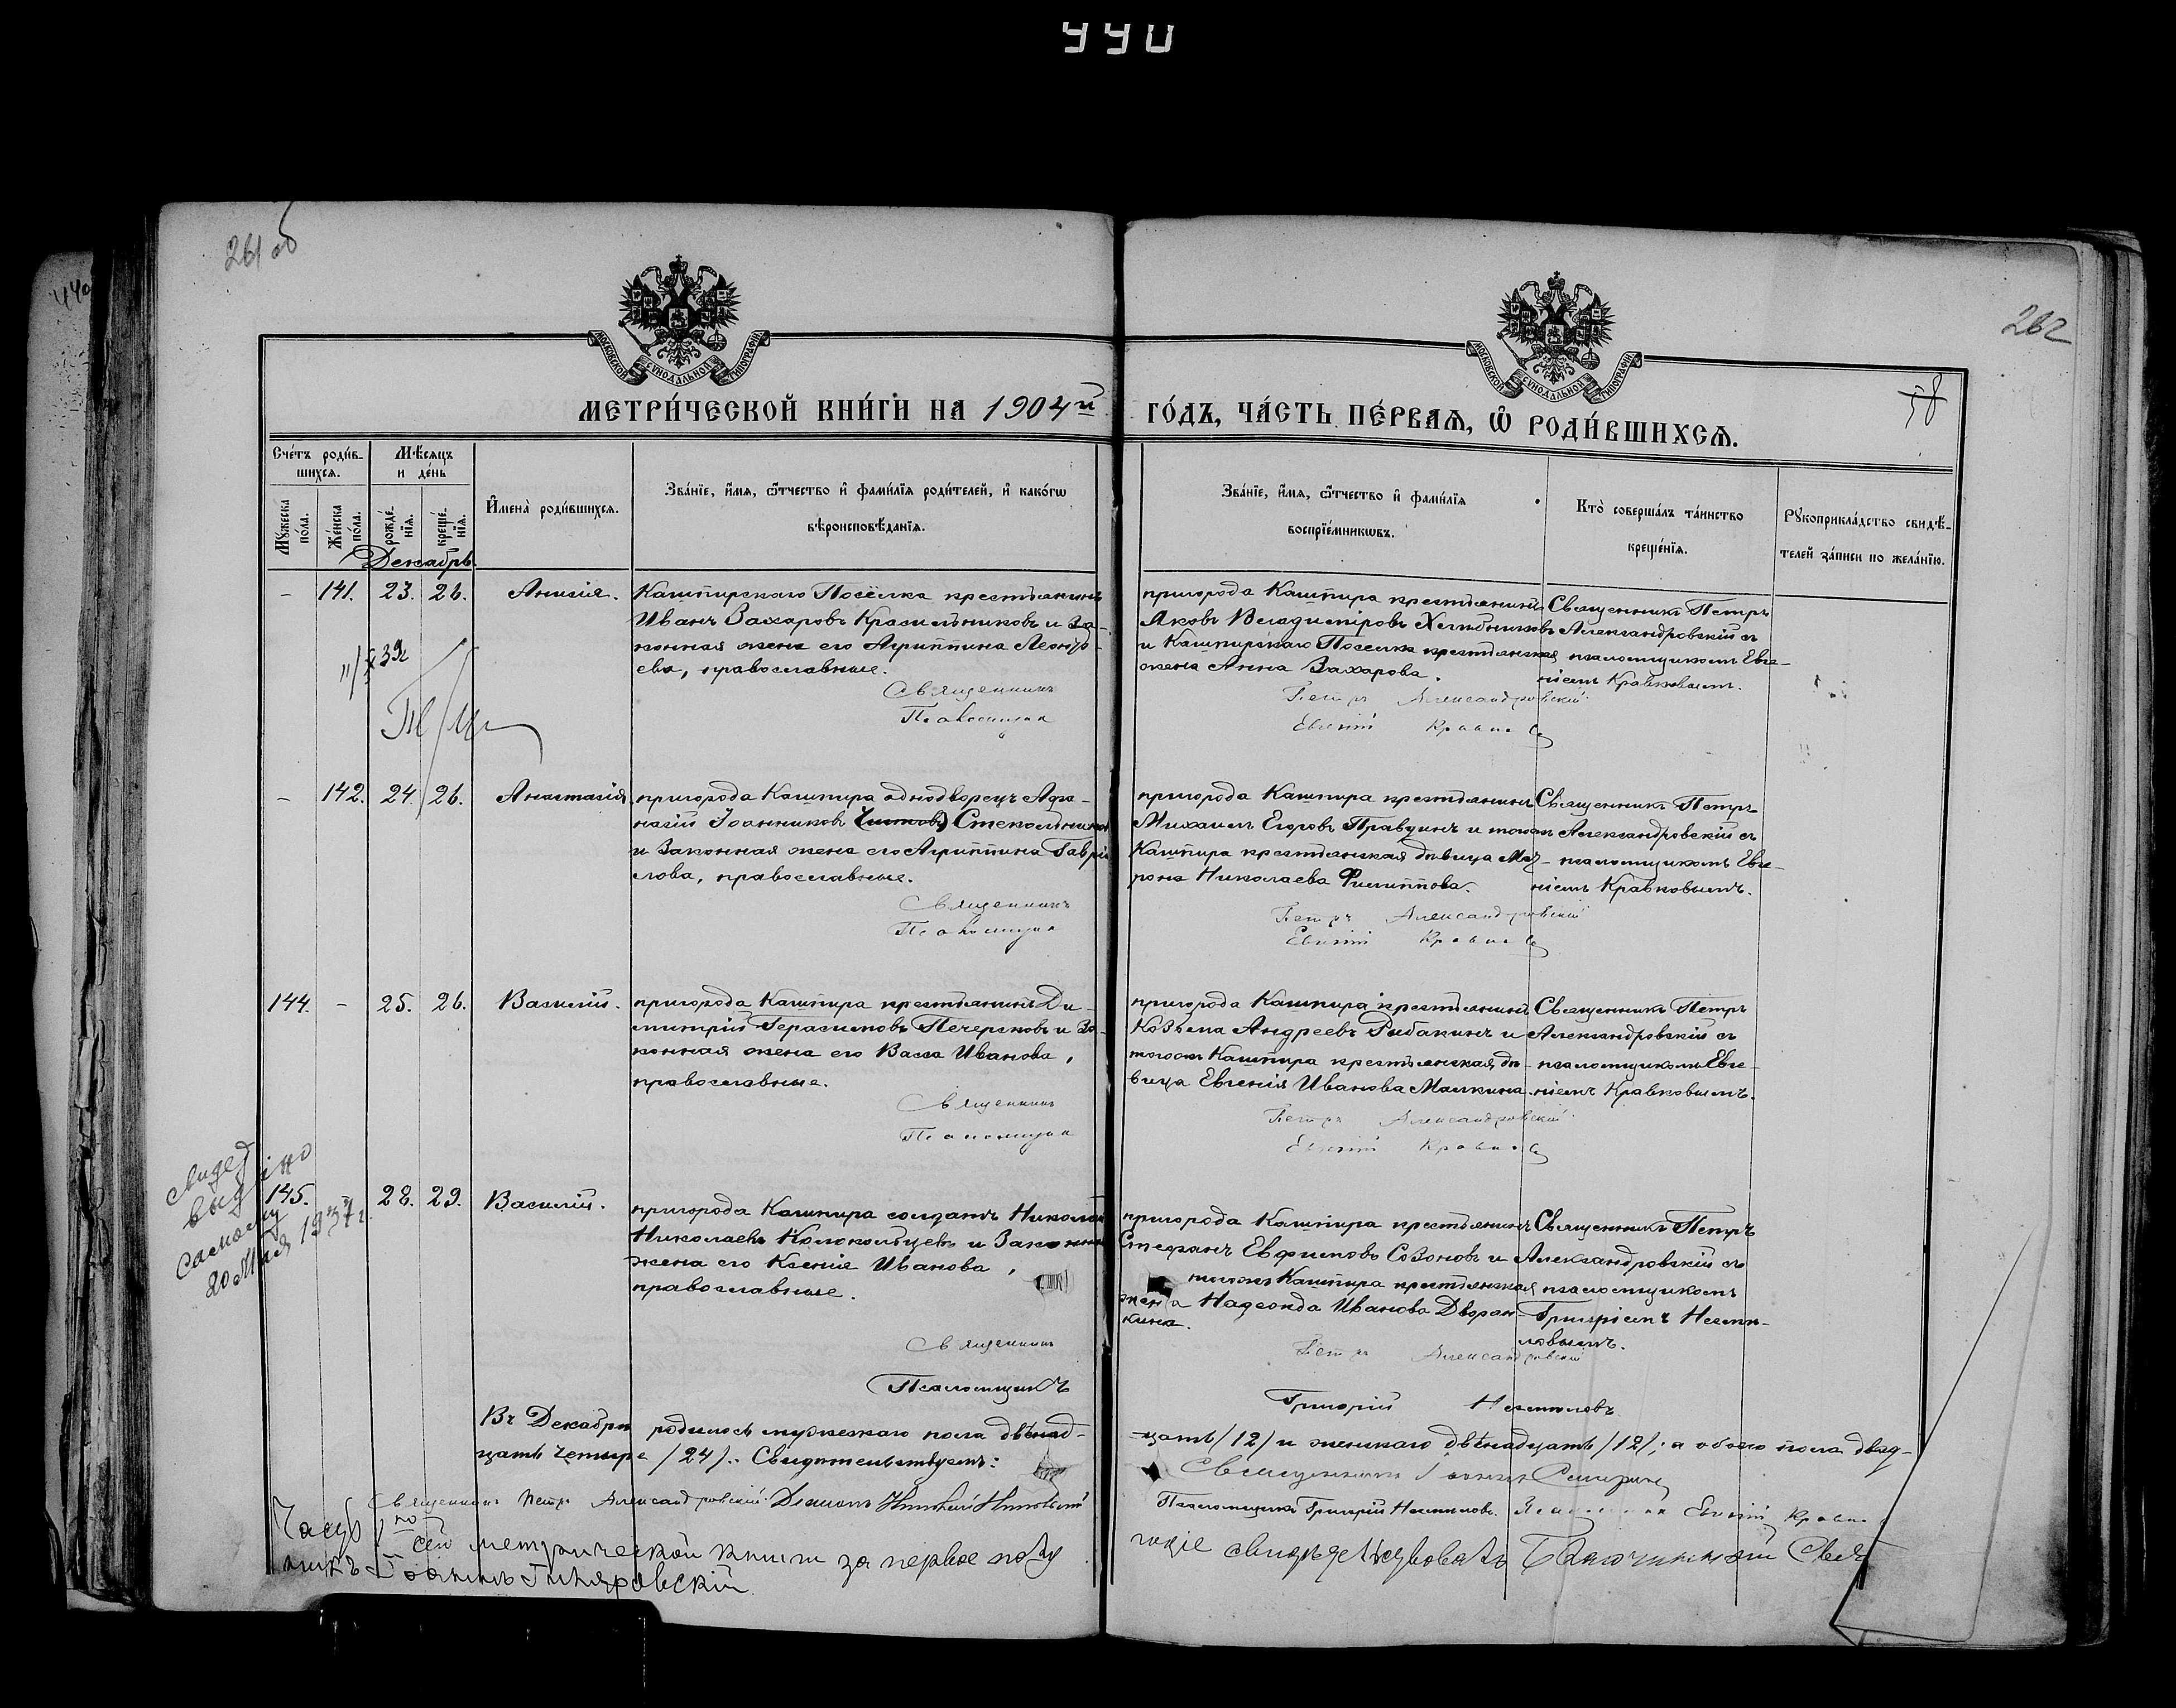 440
261 об
262
58
МОСКОВСКОЙ СѴНОДАЛЬНОЙ ТИПОГРАФІИ.
МОСКОВСКОЙ СѴНОДАЛЬНОЙ ТИПОГРАФІИ.
МЕТРИ́ЧЕСКОЙ КНИ́ГИ НА 1904й ГО́ДЪ, ЧА́СТЬ ПЕ́РВАЯ, Ѡ҆ РОДИ́ВШИХСЯ.
Сче́тъ роди́в-
шихся.
Мѣ́сяцъ
и де́нь
Мꙋ́жеска по́ла.
Же́нска по́ла.
рожде́-
нїя.
креще́-
нїя.
И҆мена̀ роди́вшихся.
Зва́нїе, и҆́мя, ѻ҆́тчество и҆ фами́лїя роди́телей, и҆ како́гѡ
вѣроисповѣ́данїя.
Зва́нїе, и҆́мя, ѻ҆́тчество и҆ фами́лїя
воспрїе́мникѡвъ.
Кто̀ соверша́лъ та́инство
креще́нїя.
Рꙋкоприкла́дство свидѣ́-
телей за́писи по жела́нїю.
Декабрь.
– 141. 23. 26. Анисія.
Кашпирскаго Посёлка крестьянинъ
Иванъ Захаровъ Красильниковъ и за-
конная жена его Агриппина Леонть-
ева, православные.
Священникъ
Псаломщикъ
пригорода Кашпира крестьянинъ
Яковъ Владиміровъ Хлѣбниковъ
и Кашпирскаго Поселка крестьянская
жена Анна Захарова.
Петръ Александровскій
Евгеній Кравковъ
Священникъ Петръ
Александровскій съ
псаломщикомъ Евге-
ніемъ Кравковымъ.
– 142. 24. 26. Анастасія
пригорода Кашпира однодворецъ Афа-
насій Іоанниковъ Стекольниковъ
и Законная жена его Агриппина Гаврі-
лова, православные.
Священникъ
Псаломщикъ
пригорода Кашпира крестьянинъ
Михаилъ Егоровъ Правдинъ и тогож
Кашпира крестьянская дѣвица Мат-
рона Николаева Филиппова.
Петръ Александровскій
Евгеній Кравковъ
Священникъ Петръ
Александровскій съ
псаломщикомъ Евге-
ніемъ Кравковымъ.
144. – 25. 26. Василій.
пригорода Кашпира крестьянинъ Ди-
митрій Герасимовъ Печерсковъ и За-
конная жена его Васса Иванова,
православные.
Священникъ
Псаломщикъ
пригорода Кашпира крестьянинъ
Козьма Андреевъ Рыбакинъ и
тогож Кашпира крестьянская дѣ-
вица Евгенія Иванова Малкина.
Петръ Александровскій
Евгеній Кравковъ
Священникъ Петръ
Александровскій съ
псаломщикомъ Евге-
ніемъ Кравковымъ.
Свидет
выдано
самому
20 Мая 1937 г.
145. 28. 29. Василій.
пригорода Кашпира солдатъ Николай
Николаевъ Колокольцевъ и Законная
жена его Ксенія Иванова,
православные.
Священникъ
Псаломщикъ
пригорода Кашпира крестьянинъ
Стефанъ Евфимовъ Созоновъ и
тогожъ Кашпира крестьянская
жена Надежда Иванова Дворян-
кина.
Петръ Александровскій
Григорій Несмѣловъ
Священникъ Петръ
Александровскій съ
псаломщикомъ
Григоріемъ Несмѣ-
ловымъ.
Въ Декабрѣ родилось мужескаго пола двѣнад-
цать /12/ и женскаго двѣнадцать /12/; а обоего пола двад-
цать четыре /24/. Свидѣтельствуемъ:
Священникъ Петръ Александровскій Діаконъ
Псаломщикъ Григорій Несмѣловъ. Псаломщикъ Евгеній Кравковъ
по сей метрической книги за первое полу
годіе свидѣтельствовалъ Благочинный Свя